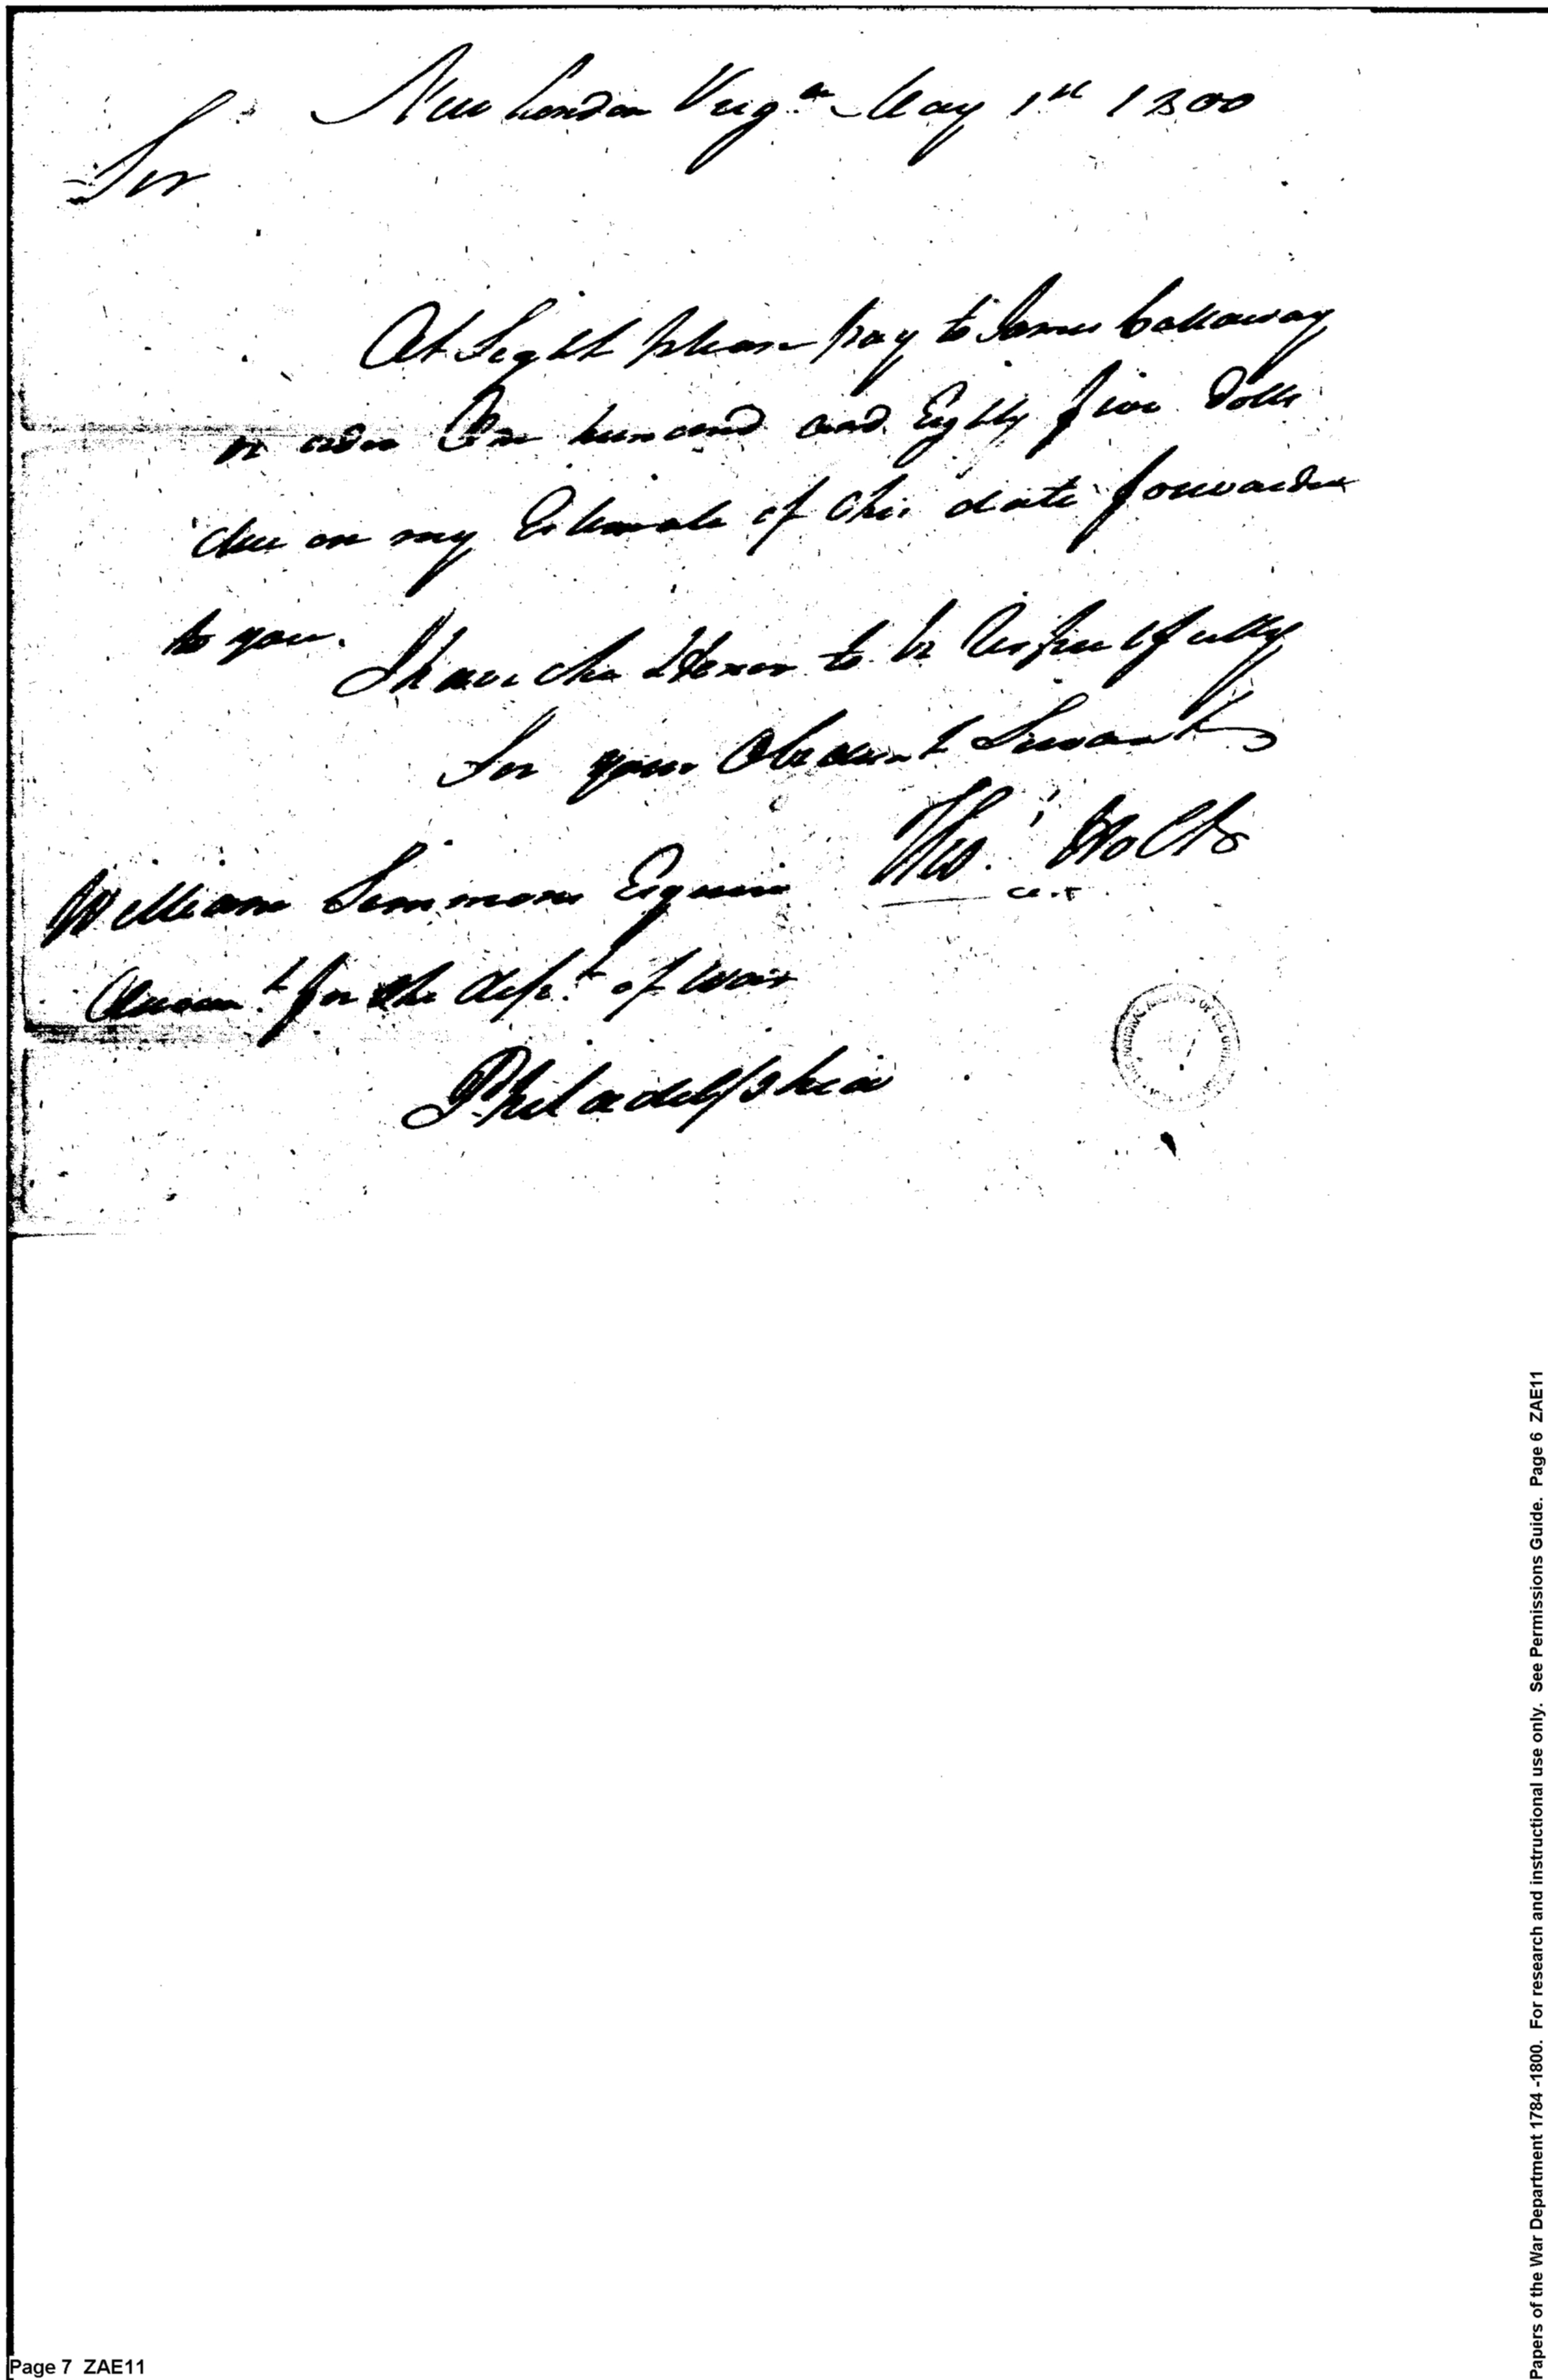 New London Virg.a May 1st 1800
Sir
At Sight please pay to James Callaway
or order One hundred and Eighty five Dolls
due on my Estimate of this date forwarded
to you.
I have the Honor to be Respectfully
Sir your Obedient Servant
Tho.s Holt
William Simmons Esquire
Account.t for the dep.t of War
Philadelphia
Page 7 ZAE11
Papers of the War Department 1784 -1800. For research and instructional use only. See Permissions Guide. Page 6 ZAE11